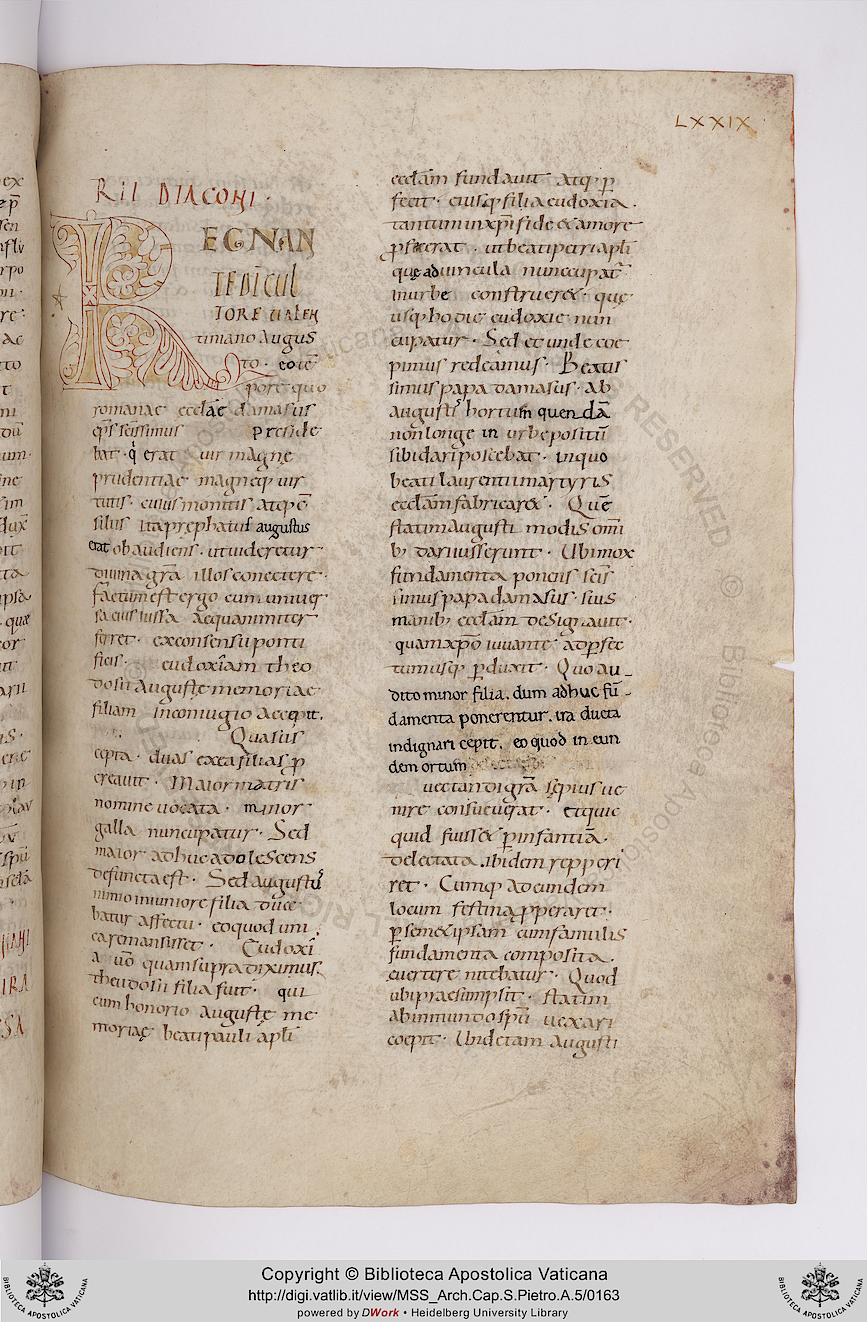 LXXIX
RII DIACONI ·
REGNAN
TE DIC UL
TORE UALEN
tiniano Augus
to · eo tē
pore quo
romanae ecclae damasus
eps̄ scissimus preside
bat · q erat uir magnę
prudentiae magneq uir
tutis · cuius monitis atq ē
silus ita prephatus augustus
erat obaudiens · ut uideretur
diuina gr̄a illos conectere ·
factum est ergo cum uniuer
sa eius iussa aequanimiter
ferret · ex consensu ponti
ficis · eudoxiam theo
dosii Auguste memoriae
filiam in coniugio accepit.
Qua sus
cepta · duas ex ea filias p
creauit · Maior matris
nomine uocata · minor
galla nuncupatur · Sed
maior adhuc adolescens
defuncta est · Sed augustus
nimio in iuniore filia duce
batur affectu · eo quod uni
ca remansisset · Eudoxi
a uō quam supra diximus
theudosii filia fuit · qui
cum honorio Augustę me
moriaę beati pauli apli
ecclam fundauit atq p
fecit · eiusq filia eudoxia ·
tantum in xpi fide et amore
pfecerat · ut beati petri apli
quę ad uincula nuncupat
in urbe construeret · quę
usq hodie eudoxie nun
cupatur · Sed et unde coe
pimus redeamus · Beatis
simus papa damasus · ab
augustis hortum quendā
non longe in urbe positū
sibi dari poscebat · in quo
beati laurentii martyris
ecclam fabricaret · Quē
statim augusti modis omī
b; dari iusserunt · Ubi mox
fundamenta ponens scis
simus papa damasus · suis
manib; ecclam designauit ·
quam xpo iuuante ad pfec
tum usq pduxit · Quo au
dito minor filia. dum adhuc fū
damenta ponerentur. ira ducta
indignari cepit. eo quod in eun
dem ortum
uectandi gr̄a sepius ue
nire consueuerat · et quic
quid fuisset p infantiā ·
delectata .ibidem repperi
ret · Cumq ad eundem
locum festina pperaret ·
p semet ipsam cum famulis
fundamenta composita ·
euertere nitebatur · Quod
ubi praesumpsit · statim
ab inmundo spū uexari
coepit · Unde tam augusti
Copyright © Biblioteca Apostolica Vaticana
http://digi.vatlib.it/view/MSS_Arch.Cap.S.Pietro.A.5/0163
powered by DWork • Heidelberg University Library